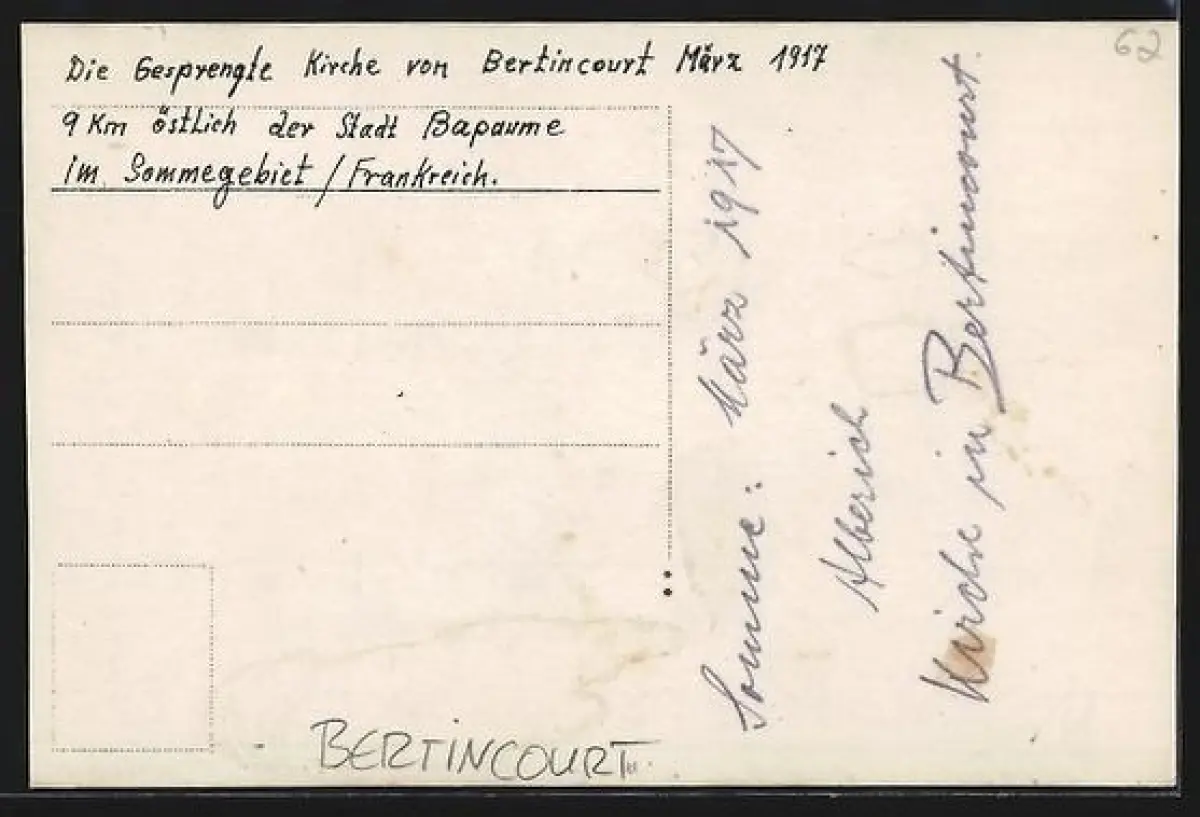 Die Gesprengte Kirche von Bertincourt März 1917
9 Km östlich der Stadt Bapaume
im Sommegebiet / Frankreich.
62
Somme: März 1917
Alberich
Kirche in Bertincourt.
BERTINCOURT